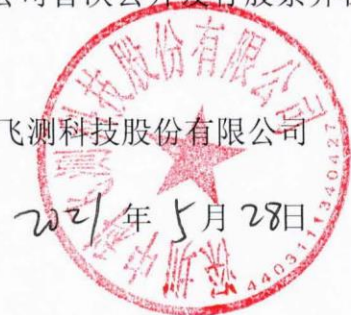 公司首次公开发行股票并在
飞测科技股份有限公司
2021年5月28日
深圳中科飞测科技股份有限公司
4403111340427